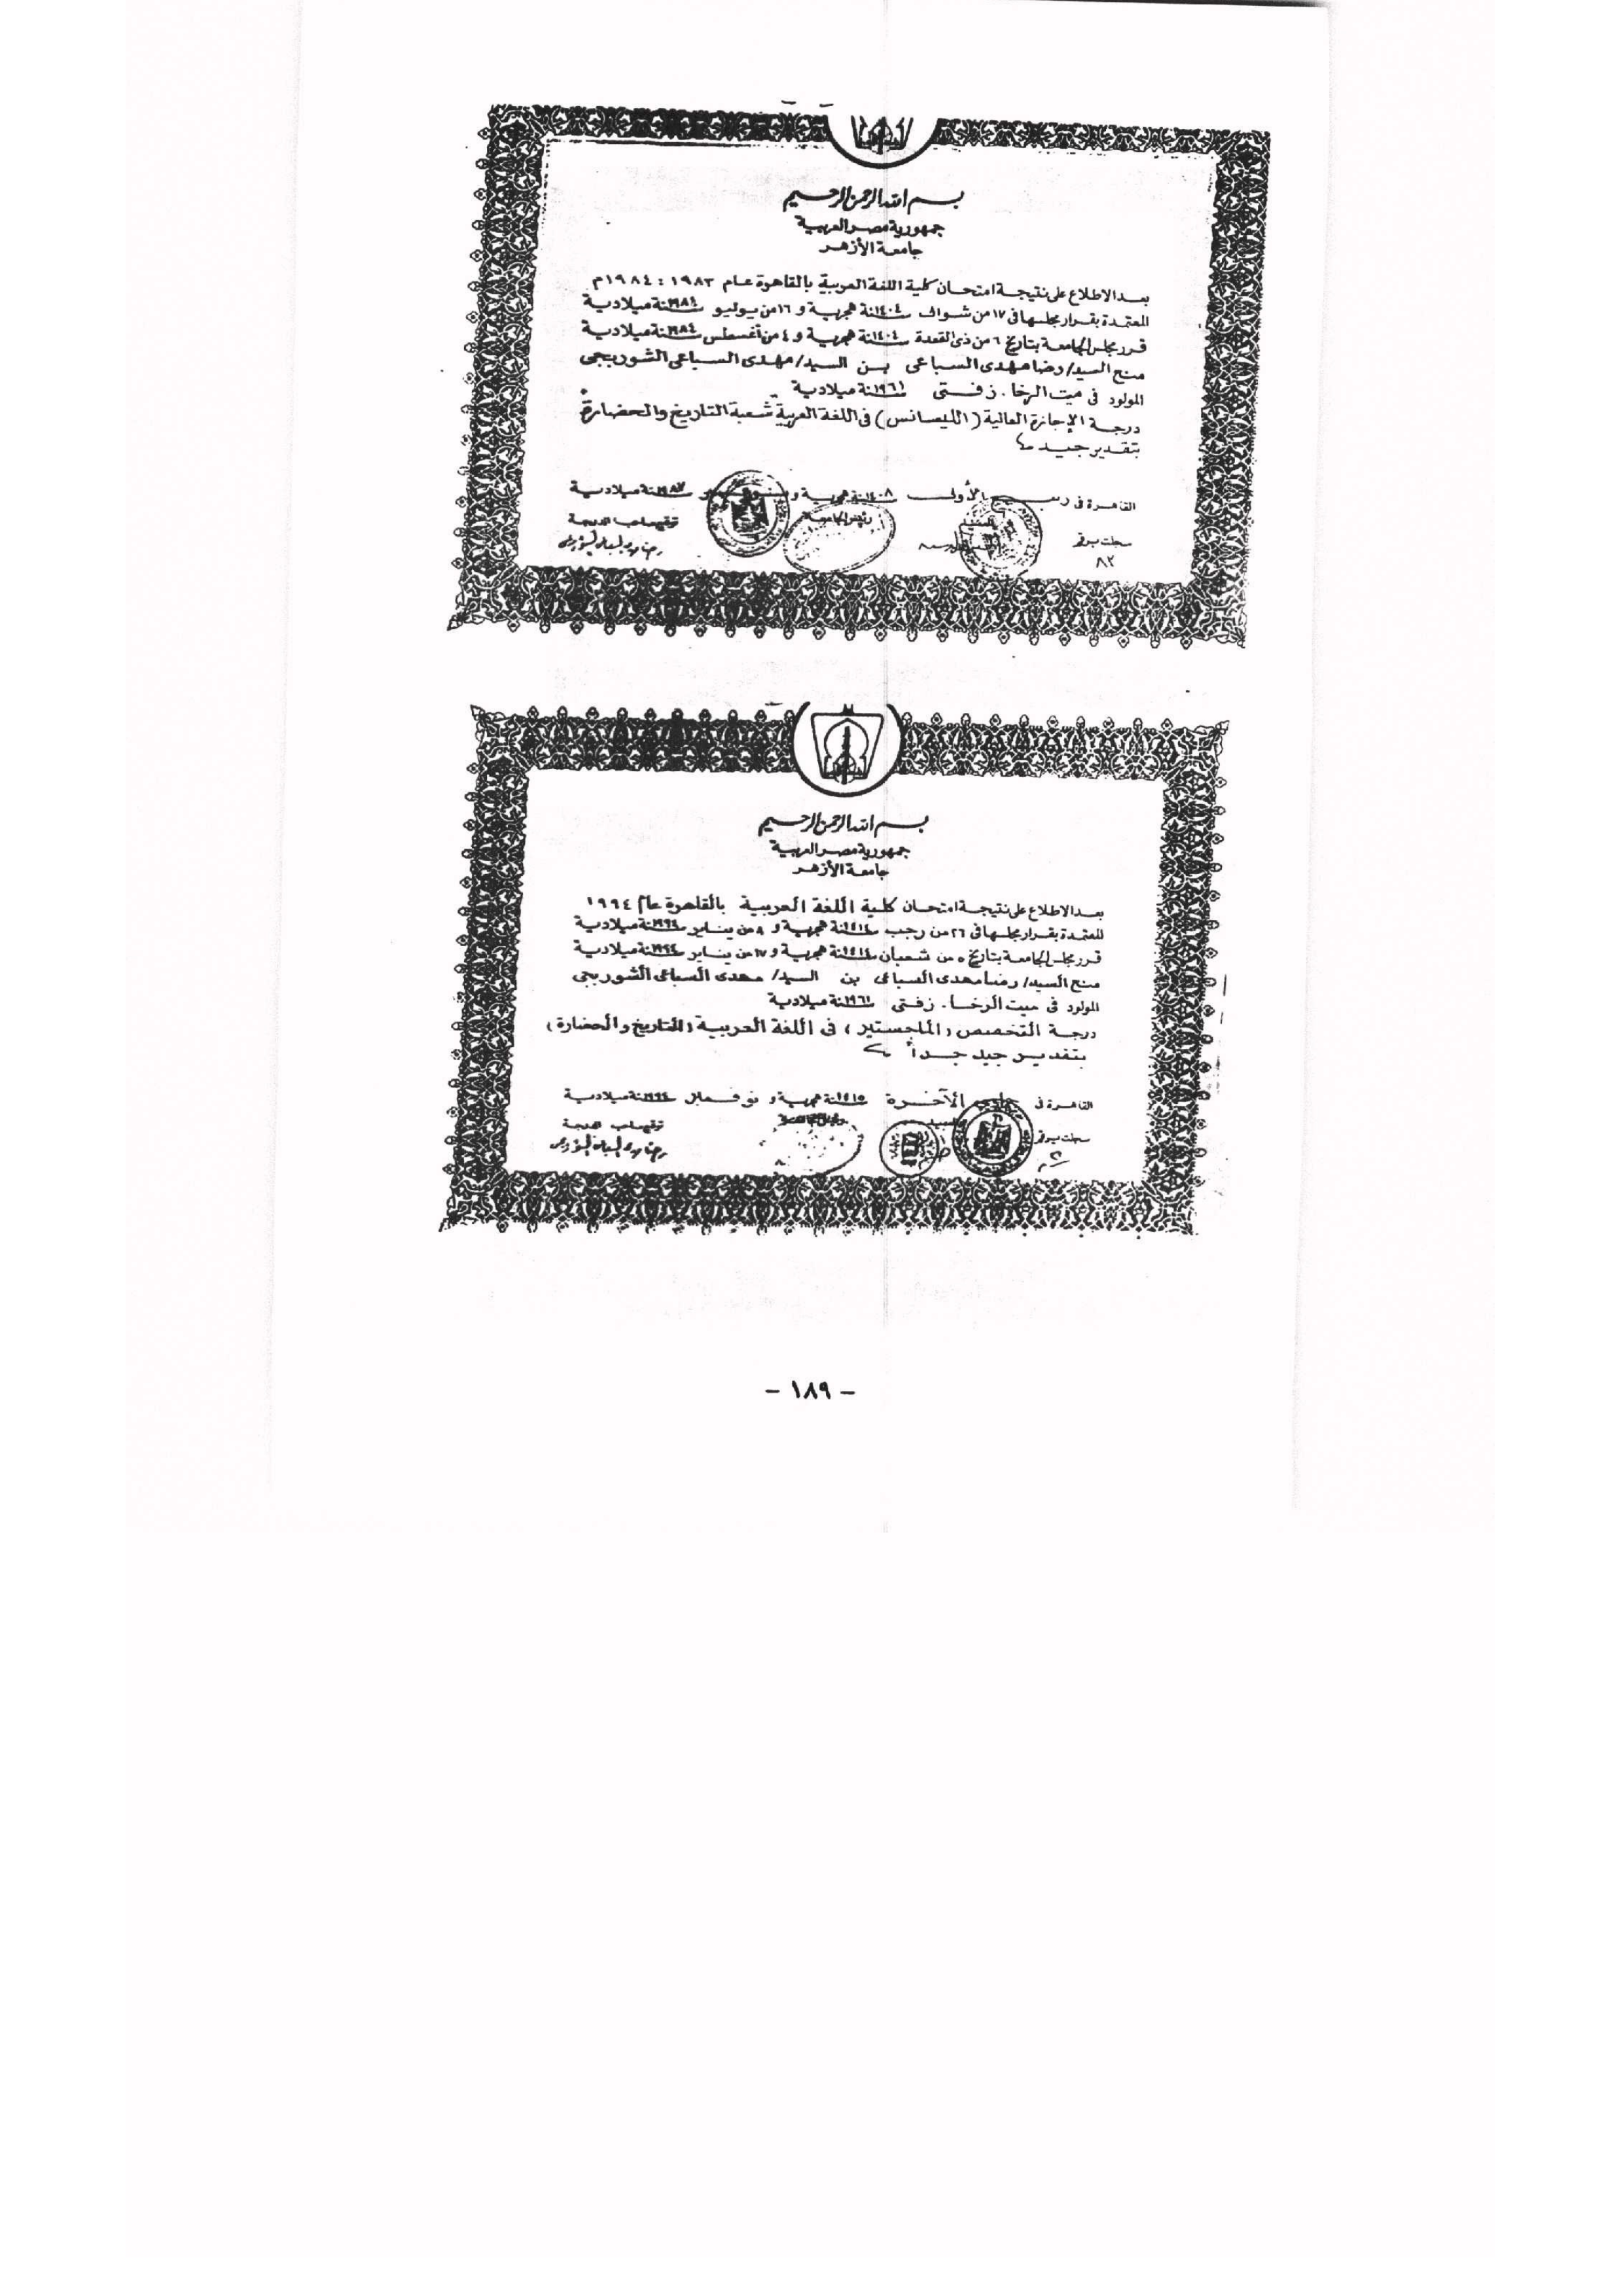 بسم الله الرحمن الرحيم
جمهورية مصر العربية
جامعة الأزهر
بعد الاطلاع على نتيجة امتحان كلية اللغة العربية بالقاهرة عام ١٩٨٣ : ١٩٨٤م
المعتمدة بقرار مجلسها فى ١٧ من شوال سنة ١٤٠٤ هجرية و ١٦ من يوليو سنة ١٩٨٤ ميلادية
قرر مجلس الجامعة بتاريخ ٦ من ذى القعدة سنة ١٤٠٤ هجرية و ٤ من أغسطس سنة ١٩٨٤ ميلادية
منح السيد/ رضا مهدى السباعى بن السيد/ مهدى السباعى الشوربجى
المولود فى ميت الرخا . زفتى سنة ١٩٦١ ميلادية
درجة الإجازة العالية (الليسانس) فى اللغة العربية شعبة التاريخ والحضارة
بتقدير جيد
القاهرة فى ربيع الأول سنة ١٤٠٨ هجرية و سنة ١٩٨٧ ميلادية
سجلت برقم رئيس الجامعة توقيع صاحب الدرجة
٨٢
بسم الله الرحمن الرحيم
جمهورية مصر العربية
جامعة الأزهر
بعد الاطلاع على نتيجة امتحان كلية اللغة العربية بالقاهرة عام ١٩٩٤
المعتمدة بقرار مجلسها فى ٢٦ من رجب سنة ١٤١٤ هجرية و ٨ من يناير سنة ١٩٩٤ ميلادية
قرر مجلس الجامعة بتاريخ ٥ من شعبان سنة ١٤١٤ هجرية و ١٧ من يناير سنة ١٩٩٤ ميلادية
منح السيد/ رضا مهدى السباعى بن السيد/ مهدى السباعى الشوربجى
المولود فى ميت الرخا . زفتى سنة ١٩٦١ ميلادية
درجة التخصص (الماجستير) فى اللغة العربية (التاريخ والحضارة)
بتقدير جيد جداً
القاهرة فى جمادى الآخرة سنة ١٤١٥ هجرية و نوفمبر سنة ١٩٩٤ ميلادية
سجلت برقم توقيع صاحب الدرجة
- ١٨٩ -